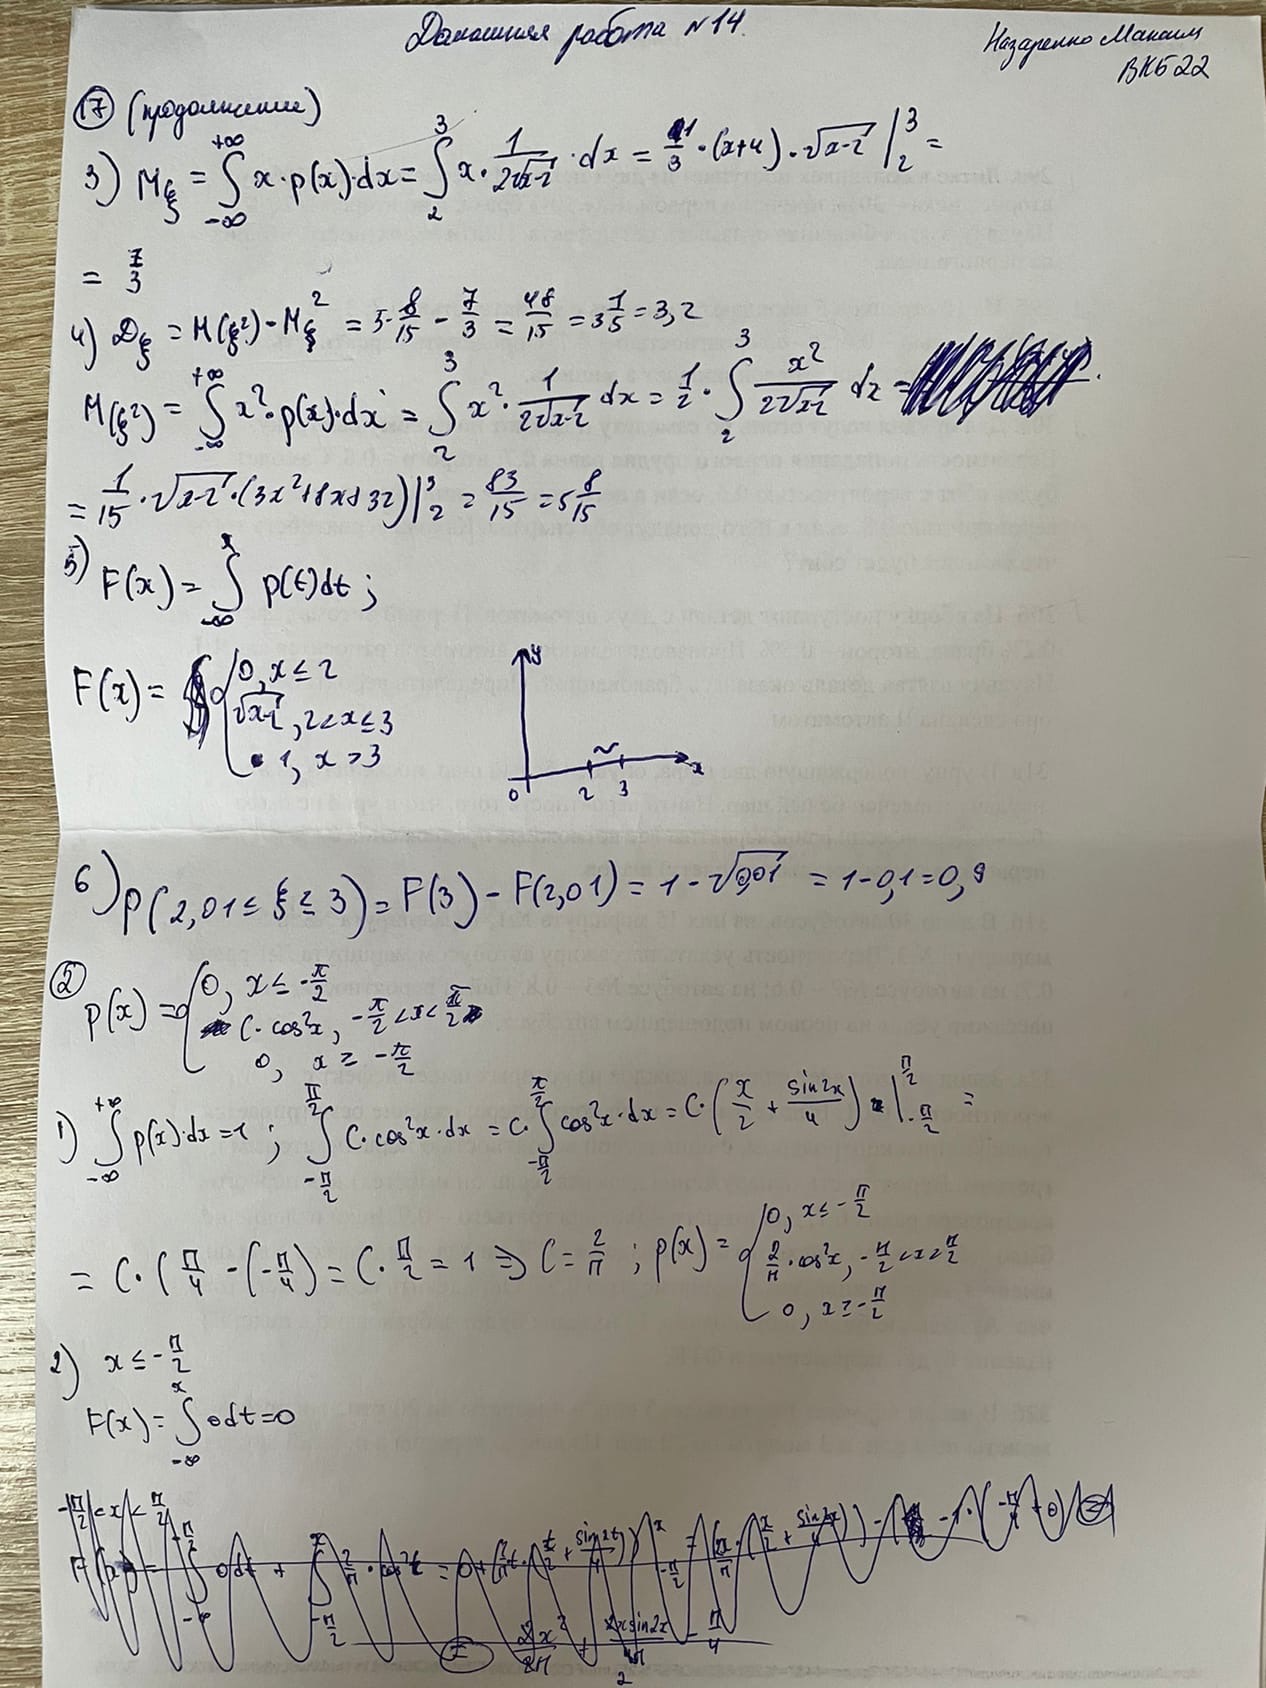 Домашняя работа №14.
Назаренко Максим
ВКБ22
⑰ (продолжение)
3) Mξ = ∫_{-∞}^{+∞} x·p(x)·dx = ∫_2^3 x·1/(2√(x-2))·dx = 1/3·(x+4)·√(x-2) |_2^3 =
= 7/3
4) Dξ = M(ξ²) - Mξ² = 5 8/15 - 7/3 = 48/15 = 3 1/5 = 3,2
M(ξ²) = ∫_{-∞}^{+∞} x²·p(x)·dx = ∫_2^3 x²·1/(2√(x-2)) dx = 1/2·∫_2^3 x²/(2√(x-2)) dx =
= 1/15·√(x-2)·(3x²+8x+32)|_2^3 = 83/15 = 5 8/15
5) F(x) = ∫_{-∞}^x p(t)dt;
F(x) = { 0, x ≤ 2
√(x-2), 2<x≤3
1, x >3
y
x
0 2 3
6) P(2,01 ≤ ξ ≤ 3) = F(3) - F(2,01) = 1 - √0,01 = 1-0,1=0,9
⑤
p(x) = { 0, x ≤ -π/2
C·cos²x, -π/2 <x< π/2
0, x ≥ -π/2
1) ∫_{-∞}^{+∞} p(x)·dx=1; ∫_{-π/2}^{π/2} C·cos²x·dx = C·∫_{-π/2}^{π/2} cos²x·dx = C·(x/2 + sin2x/4) |_{-π/2}^{π/2} =
= C·(π/4 - (-π/4) = C·π/2 = 1 ⇒ C = 2/π ; p(x) = { 0, x ≤ -π/2
2/π·cos²x, -π/2 <x< π/2
0, x ≥ -π/2
2) x ≤ -π/2
F(x) = ∫_{-∞}^x 0dt=0
-π/2 < x < π/2